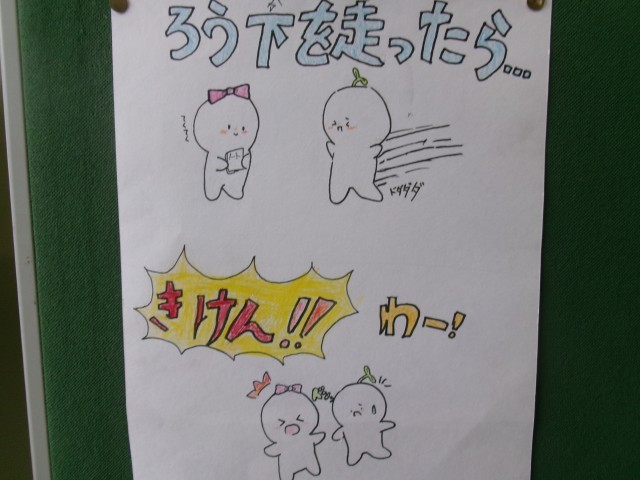 ろう下を走ったら...
ドダダダ
きけん!!
わー!